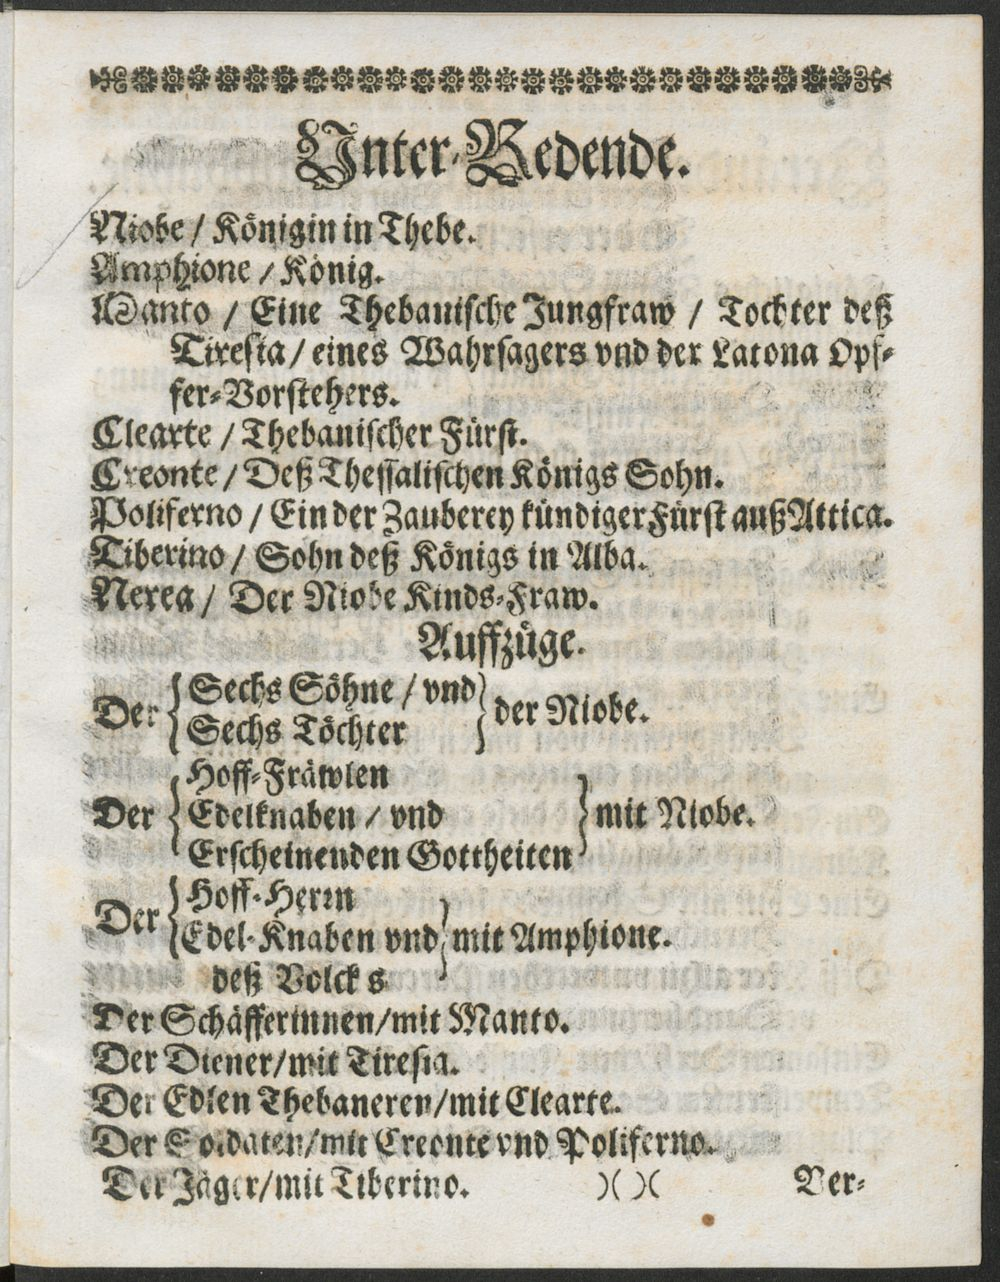 Unter-Redende.
Niobe / Königin in Thebe.
Amphione / König.
Manto / Eine Thebanische Jungfraw / Tochter deß
Tiresia / eines Wahrsagers vnd der Latona Opf-
fer-Vorstehers.
Clearte / Thebanischer Fürst.
Creonte / Deß Thessalischen Königs Sohn.
Poliferno / Ein der Zauberey kündiger Fürst auß Attica.
Tiberino / Sohn deß Königs in Alba.
Nerea / Der Niobe Kinds-Fraw.
Auffzüge.
Der { Sechs Söhne / vnd
Sechs Töchter } der Niobe.
Der { Hoff-Fräwlen
Edelknaben / vnd
Erscheinenden Gottheiten } mit Niobe.
Der { Hoff-Herrn
Edel-Knaben vnd
deß Volcks } mit Amphione.
Der Schäfferinnen/mit Manto.
Der Diener/mit Tiresia.
Der Edlen Thebaneren/mit Clearte.
Der Soldaten/mit Creonte vnd Poliferno.
Der Jäger/mit Tiberino. )( )( Ver-